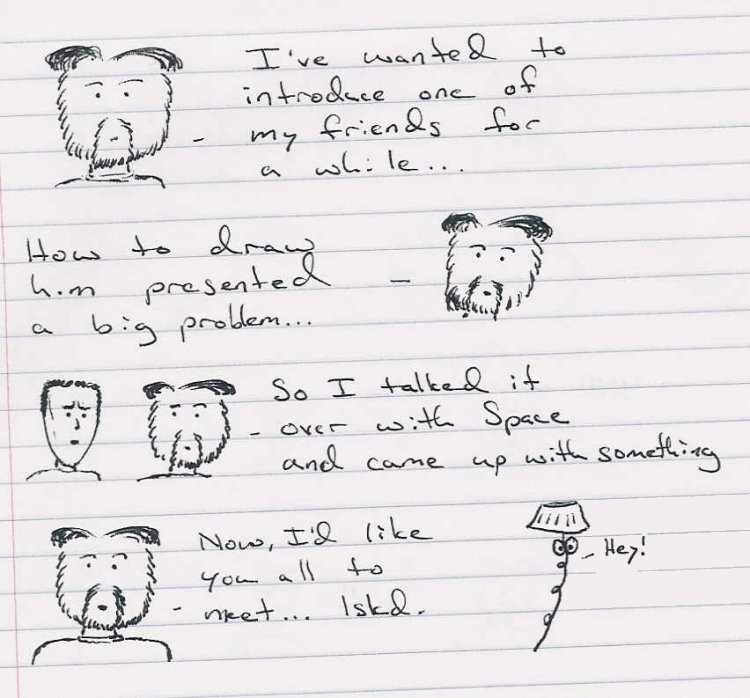 I've wanted to
introduce one of
my friends for
a while...
How to draw
him presented
a big problem...
So I talked it
over with Space
and came up with something
Now, I'd like
you all to
meet... Iskd.
Hey!